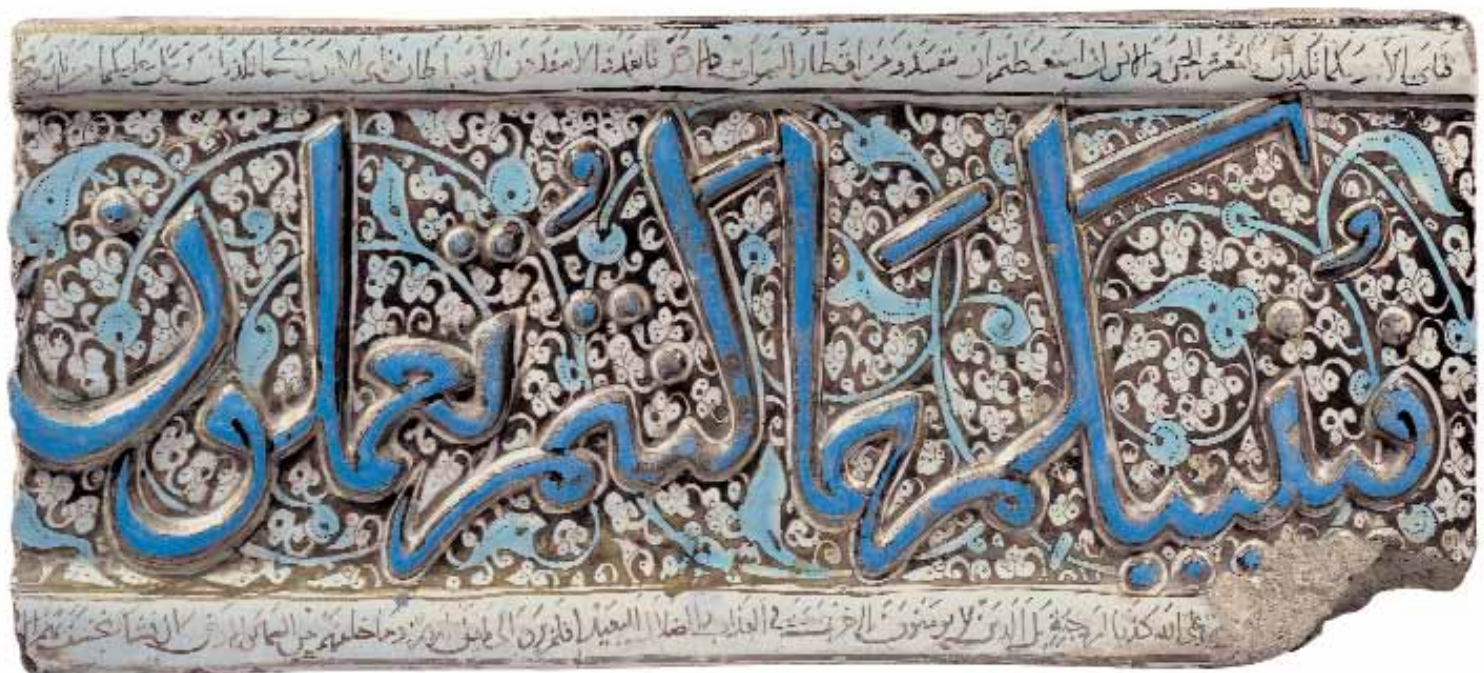 فبأي آلاء ربكما تكذبان يا معشر الجن والانس ان استطعتم ان تنفذوا من اقطار السموات والارض فانفذوا لا تنفذون الا بسلطان فبأي آلاء ربكما تكذبان يرسل عليكما من نار
فينبيكم بما كنتم تعملون
على الله كذبا ام به جنة بل الذين لا يومنون بالاخرة في العذاب والضلال البعيد افلم يروا الى ما بين ايديهم وما خلفهم من السماء والارض ان نشا نخسف بهم